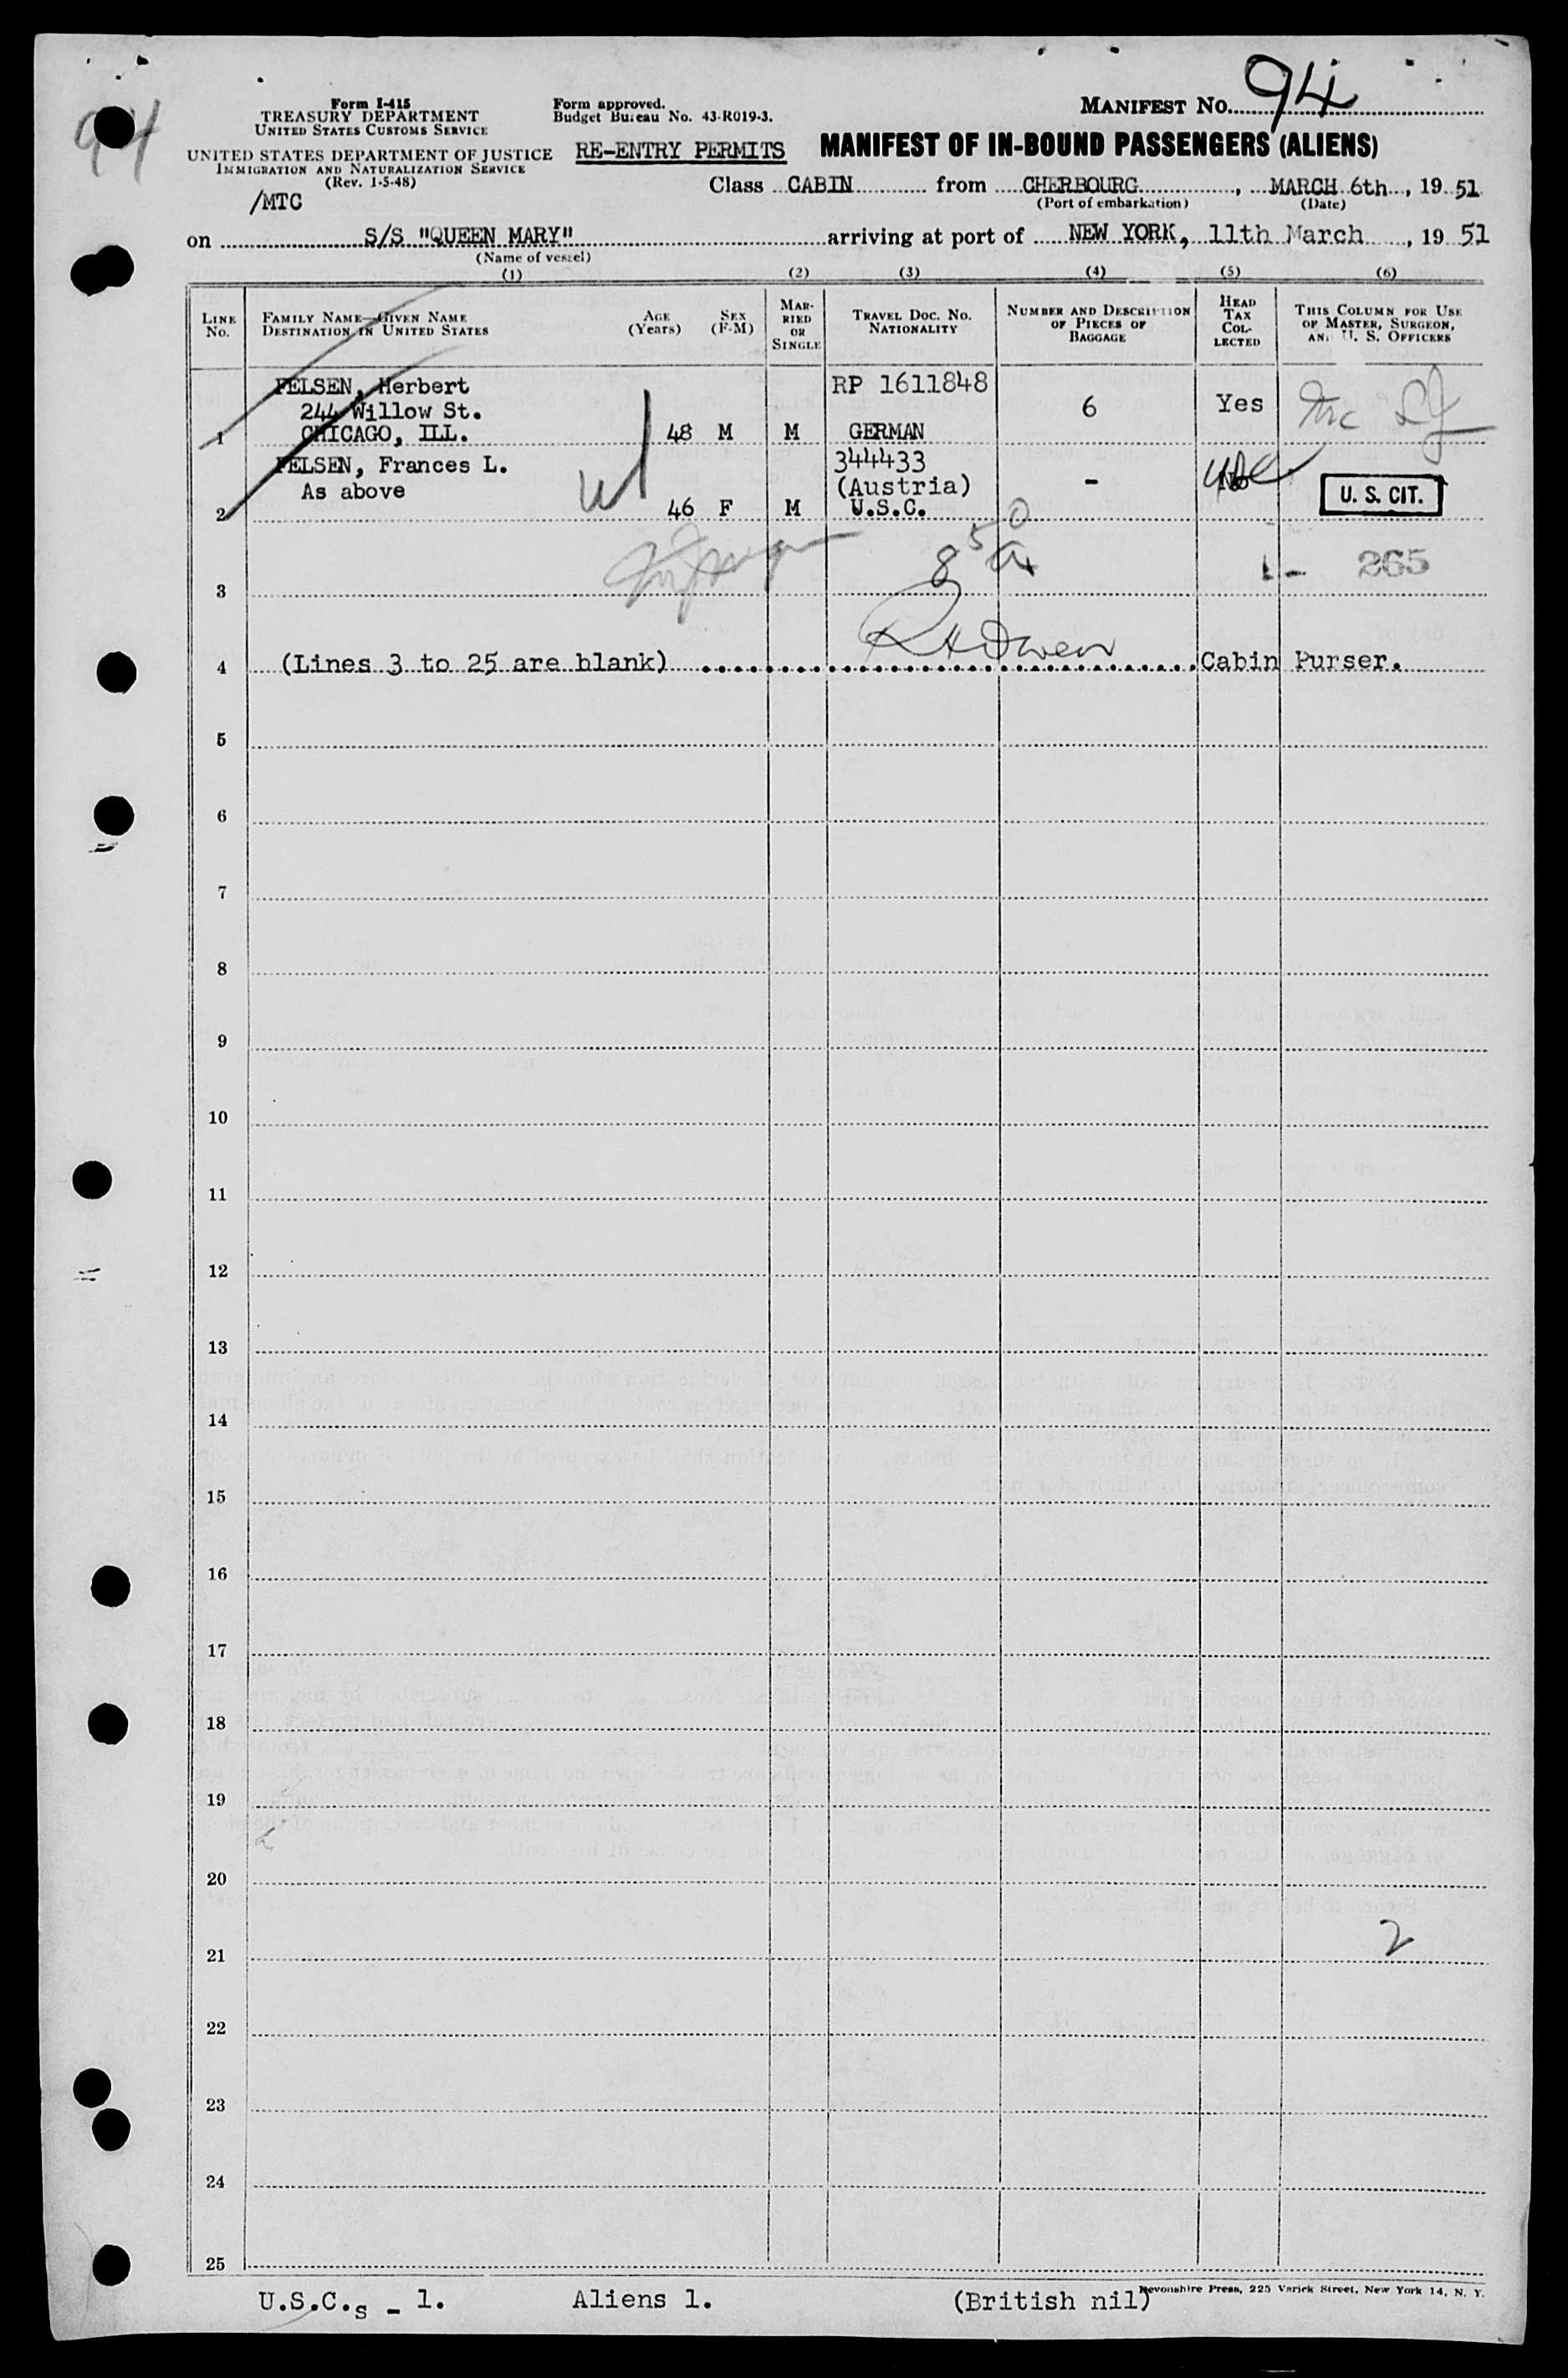 94
Form I-415
TREASURY DEPARTMENT
UNITED STATES CUSTOMS SERVICE
UNITED STATES DEPARTMENT OF JUSTICE
IMMIGRATION AND NATURALIZATION SERVICE
(Rev. 1-5-48)
/MTC
Form approved.
Budget Bureau No. 43-R019-3.
RE-ENTRY PERMITS
MANIFEST NO. 94
MANIFEST OF IN-BOUND PASSENGERS (ALIENS)
Class CABIN from CHERBOURG, MARCH 6th, 19 51
(Port of embarkation) (Date)
on S/S "QUEEN MARY" arriving at port of NEW YORK, 11th March, 19 51
(Name of vessel)
(1) (2) (3) (4) (5) (6)
LINE No.
FAMILY NAME—GIVEN NAME
DESTINATION IN UNITED STATES
AGE (Years)
SEX (F-M)
MARRIED OR SINGLE
TRAVEL DOC. NO. NATIONALITY
NUMBER AND DESCRIPTION OF PIECES OF BAGGAGE
HEAD TAX COLLECTED
THIS COLUMN FOR USE OF MASTER, SURGEON, AND U. S. OFFICERS
FELSEN, Herbert RP 1611848
244 Willow St. 6 Yes
1 CHICAGO, ILL. 48 M M GERMAN
FELSEN, Frances L. 344433
As above (Austria) - No U. S. CIT.
2 46 F M U.S.C.
850
265
3
4 (Lines 3 to 25 are blank) Cabin Purser.
5
6
7
8
9
10
11
12
13
14
15
16
17
18
19
20
21 2
22
23
24
25
U.S.C.s - 1. Aliens 1. (British nil)
Devonshire Press, 225 Varick Street, New York 14, N. Y.